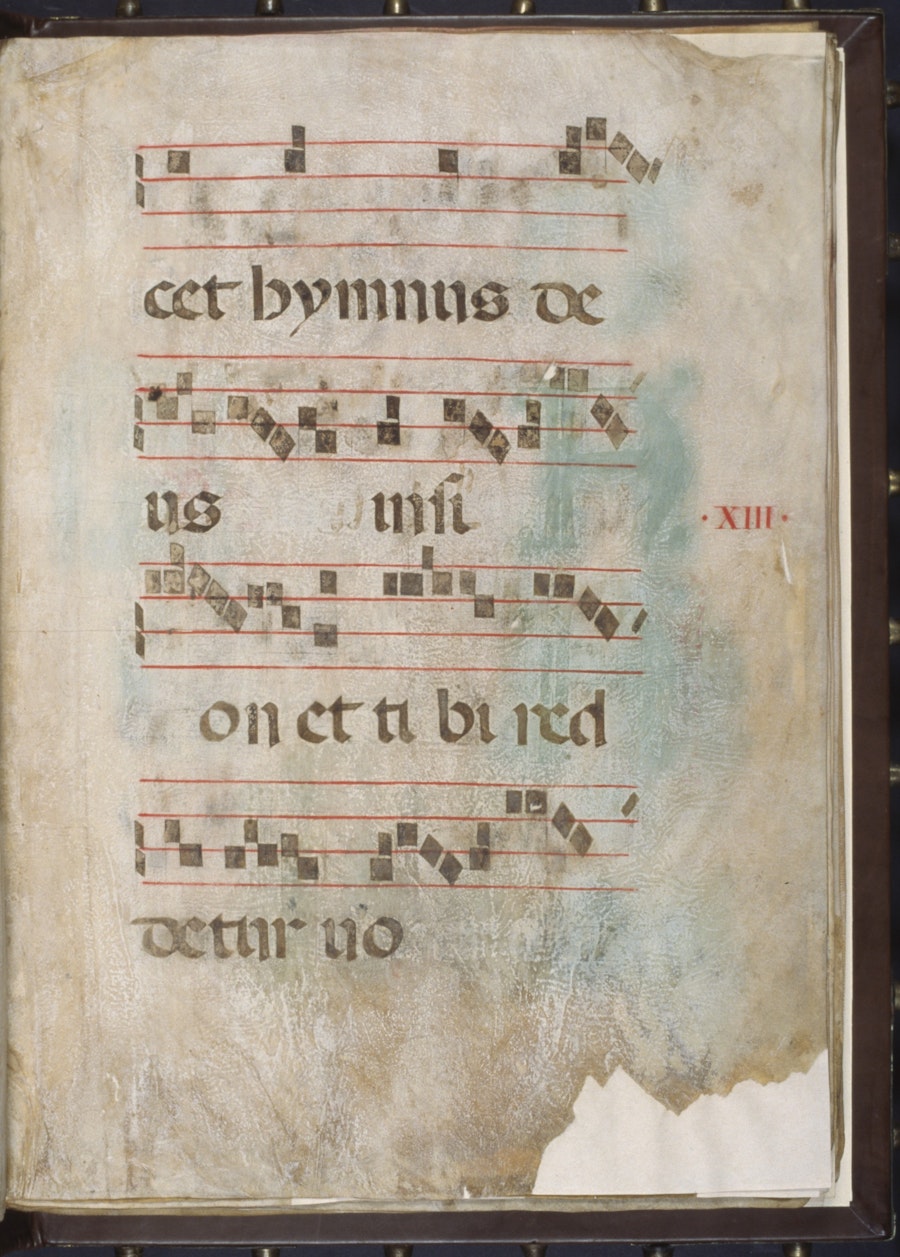 cet hymnus de
us in si
·XIII·
on et ti bi red
detur uo